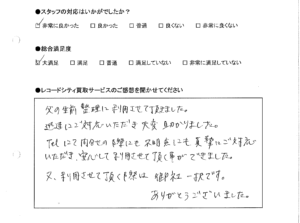 ●スタッフの対応はいかがでしたか?
☑非常に良かった □良かった □普通 □良くない □非常に良くない
●総合満足度
☑大満足 □満足 □普通 □満足していない □非常に満足していない
●レコードシティ買取サービスのご感想を聞かせてください
父の生前整理に利用させて頂きました。
迅速にご対応いただき大変助かりました。
Telにて問合せの際にも不明点にも真摯にご対応
いただき、安心して利用させて頂く事ができました。
又、利用させて頂く際は 御社一択です。
ありがとうございました。